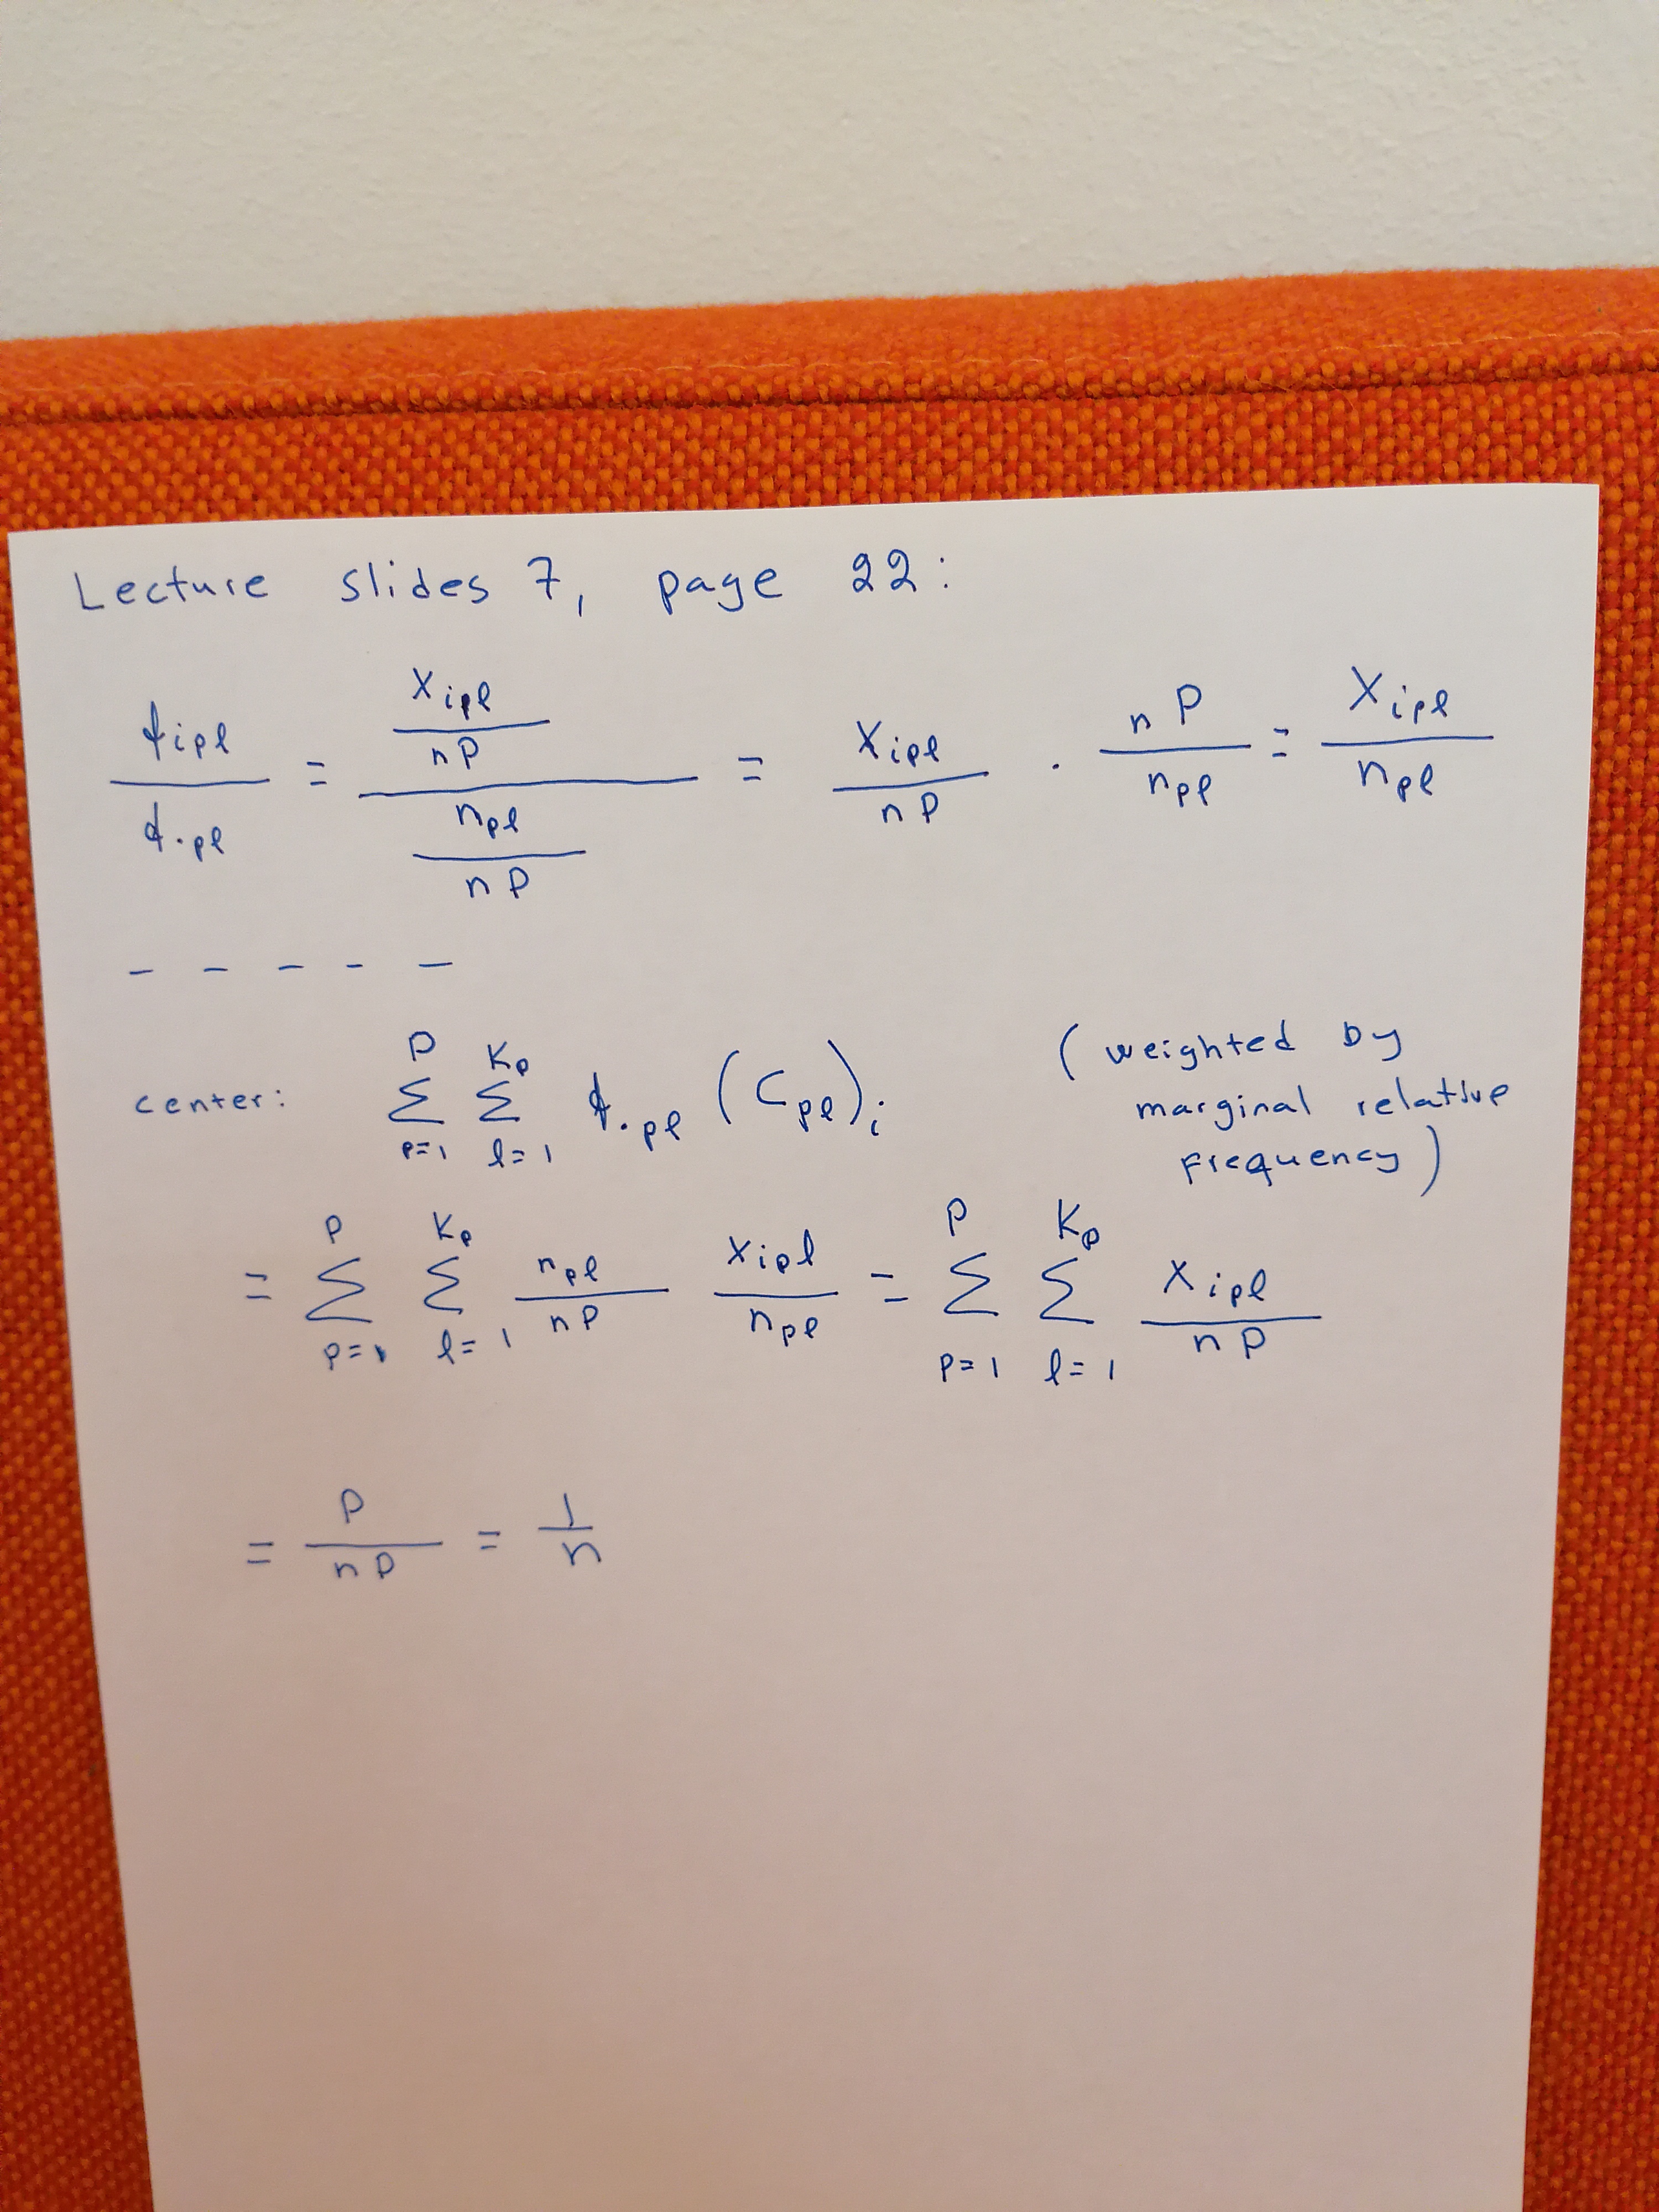 Lecture slides 7, page 22:
f_{ipl} / f_{.pl} = (x_{ipl} / nP) / (n_{pl} / nP) = x_{ipl} / nP · nP / n_{pl} = x_{ipl} / n_{pl}
- - - - -
center: Σ_{p=1}^{P} Σ_{l=1}^{K_p} f_{.pl} (C_{pl})_i (weighted by
marginal relative
frequency)
= Σ_{p=1}^{P} Σ_{l=1}^{K_p} n_{pl} / nP x_{ipl} / n_{pl} = Σ_{p=1}^{P} Σ_{l=1}^{K_p} x_{ipl} / nP
= P / nP = 1 / n